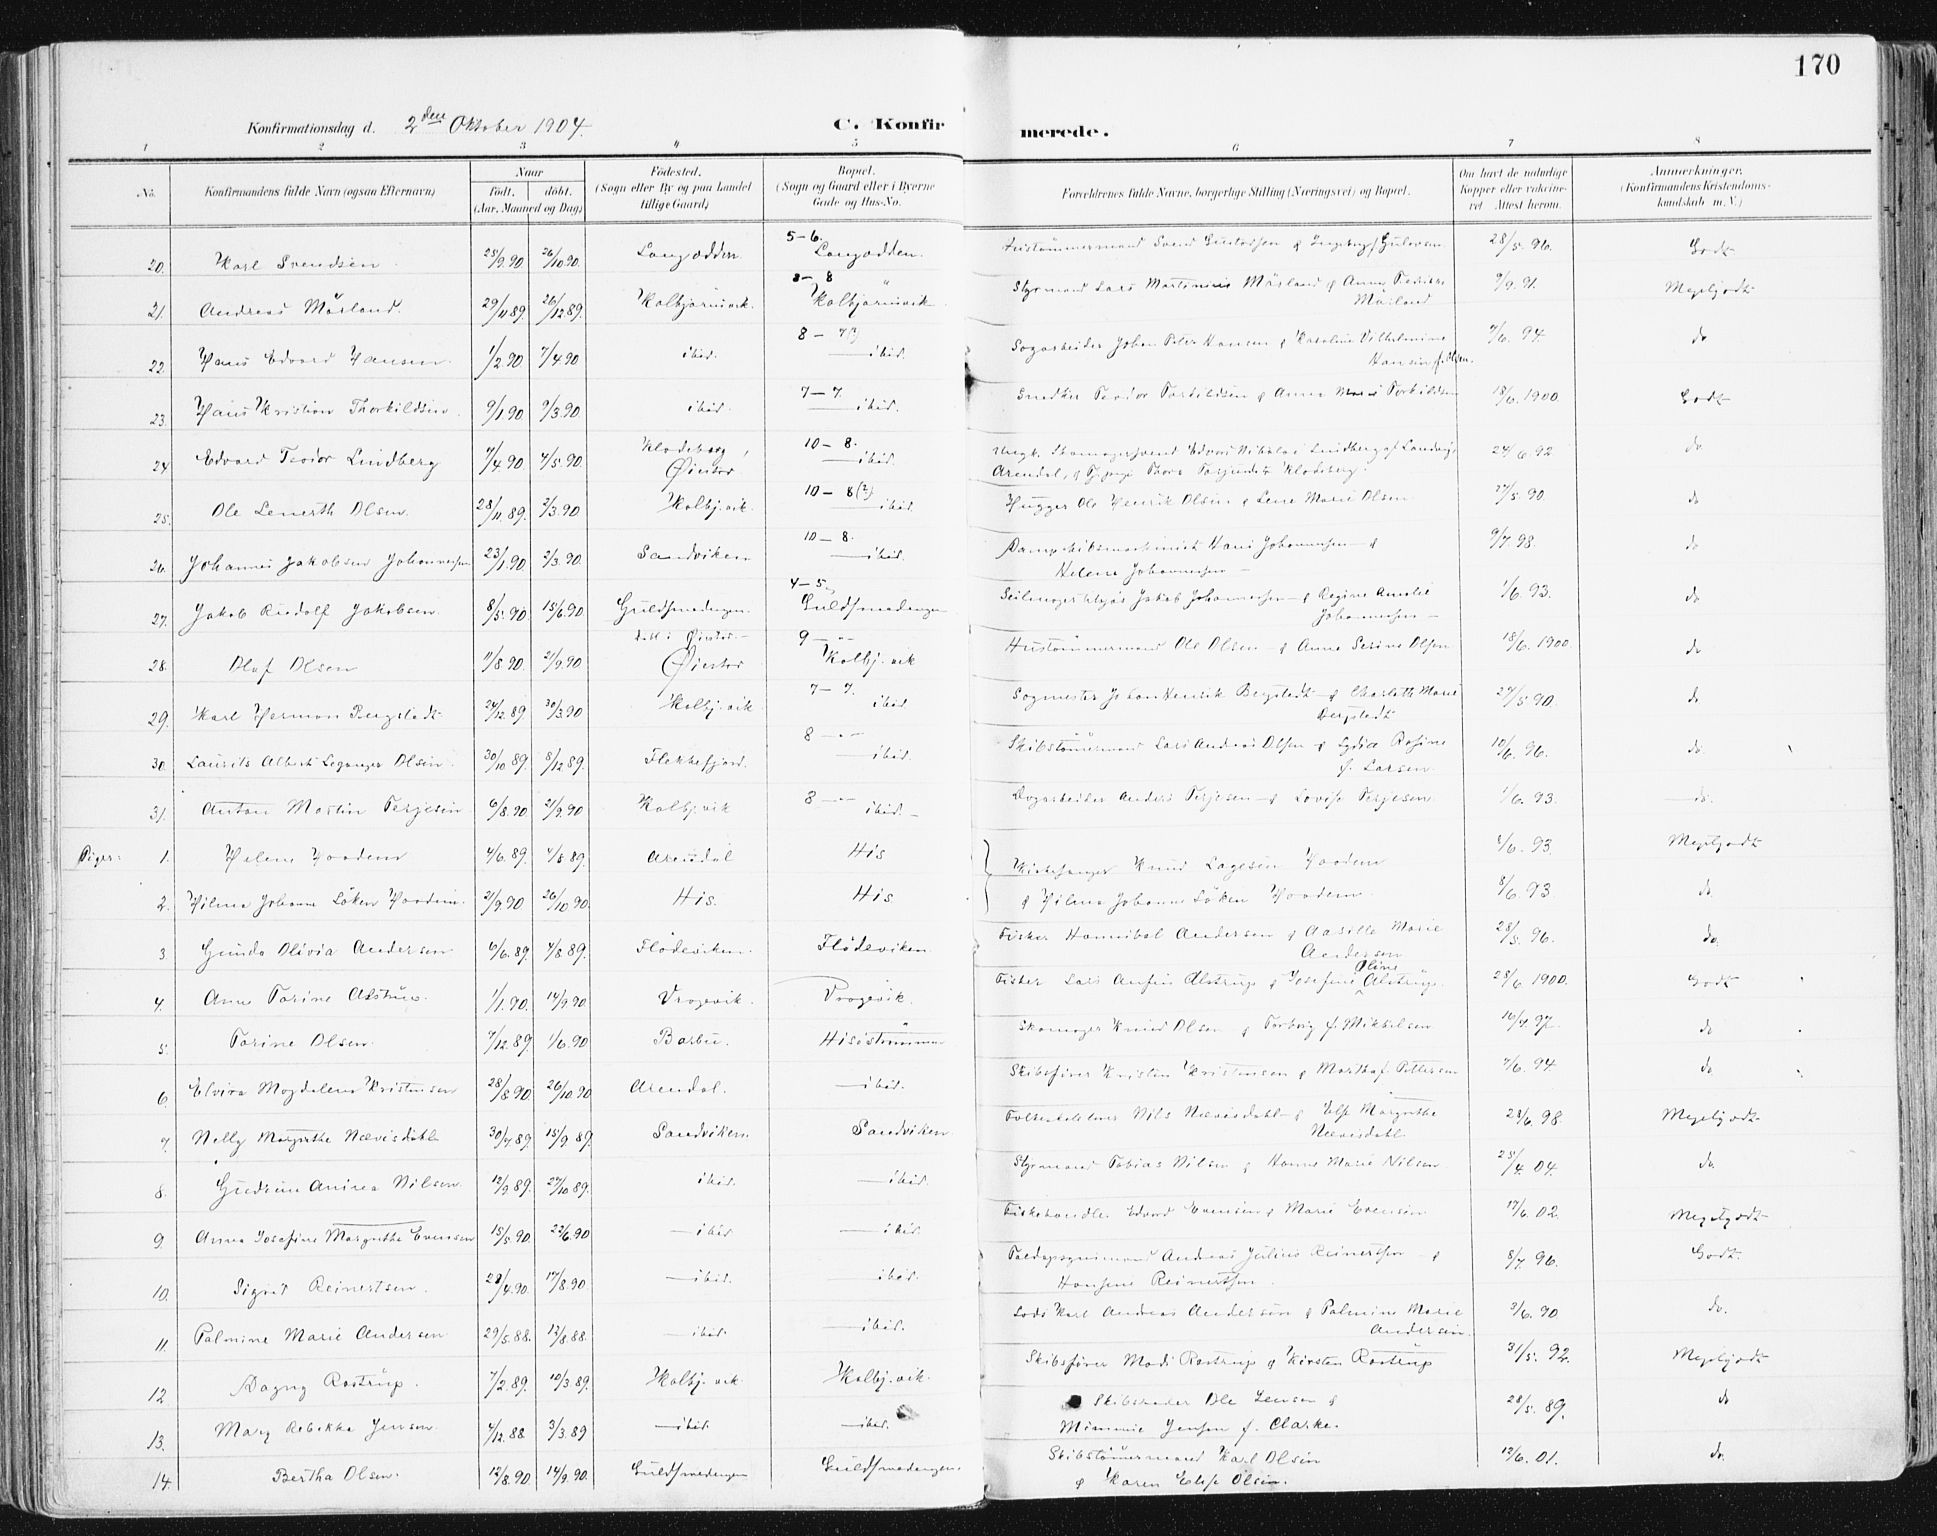 170
Konfirmationsdag d. 2den Oktober 1904.
C. Konfirmerede.
1 2 3 4 5 6 7 8
No.
Konfirmandens fulde Navn (ogsaa Efternavn)
Naar
født. døbt.
(Aar, Maaned og Dag)
Fødested.
(Sogn eller By og paa Landet
tillige Gaard)
Bopæl.
(Sogn og Gaard eller i Byerne
Gade og Hus-No.
Forældrenes fulde Navne, borgerlige Stilling (Næringsvei) og Bopæl.
Om havt de naturlige
Kopper eller vaccine-
ret Attest herom.
Anmærkninger.
(Konfirmandens Kristendoms-
kundskab m. V.)
5-6.
20. Karl Svendsen 25/9.90 26/10.90 Langodden Langodden. 28/5.96. Godt
8-8
21. Andreas Mørland. 29/11.89. 26/12.89. Kolbjørnsvik. Kolbjørnsvik Styrmand Lars Martinius Mørland & Anna Fredrikke 9/9.91. Megetgodt
Mørland
22. Hans Edvard Hansen 1/2.90 7/4.90 ibid. ibid. Sagarbeider Johan Peter Hansen & Karoline Vilhelmine 7/6.94. do
Hansen f. Olsen.
7-7.
23. Hans Kristian Thorkildsen 9/1.90 9/3.90. ibid. ibid. Teodor Torkildsen & Anna Marie Torkildsen 18/6.1900 Godt
10-8.
24. Edvard Teodor Lindberg 7/4.90 4/5.90. Klodeborg, ibid. 24/6.92 do
Øiestad
10-8(2)
25. Ole Lenerth Olsen. 28/11.89. 2/3.90 Kolbj.vik. ibid. Hugger Ole Henrik Olsen & Lene Marie Olsen 27/5.90. do
10-8.
26. Johannes Jakobsen Johannessen 23/1.90. 2/3.90. Sandviken ibid. Dampskibsmaskinist Hans Johannessen & 9/7.98. do
Helene Johannessen
4-5
27. Jakob Rudolf Jakobsen 8/5.90. 15/6.90 Guldsmedengen. Guldsmedengen Jakob Johannessen & Regine Amalie 1/6.93. do
Johannessen
døbt i Øiestad
9-
28. Olaf Olsen 11/8.90 21/9.90 Øiestad Kolbj.vik Hustømmermand Ole Olsen & Anne Serine Olsen 18/6.1900 do
7-7.
29. Karl Herman Bergstedt 24/12.89. 30/3.90 Kolbj.vik ibid. Sagmester Johan Henrik Bergstedt & Charlotte Marie 27/5.90. do
Bergstedt
8
30. Laurits Albert Olsen. 30/10.89. 8/12.89. Flekkefjord. ibid. Skibstømmermand Lars Andreas Olsen & Lydia Rosine 10/6.96. do.
f. Larsen.
31. Anton Martin Terjesen 6/8.90. 21/9.90 Kolbj.vik 8 ibid. Anders Terjesen & Lovise Terjesen. 1/6.93. do.
Piger:
1. Helene Hoodem 4/6.89. 4/8.89. Arendal His Kirkesanger Knud Lagesen Hoodem 8/6.93. Megetgodt
2. Hilma Johanne Løken Hoodem. 21/9.90 26/10.90. His. His. & Hilma Johanne Løken Hoodem. 8/6.93 do.
3. Gunda Olivia Andersen 6/6.89. 4/8.89. Flødeviken. Flødeviken. Fisker Hannibal Andersen & Aasille Marie 28/5.96. do.
Andersen
Oline
4. Anne Torine Alstrup. 1/1.90. 14/9.90 Vragevik. Vragevik. Fisker Lars Alstrup & Josefine Alstrup. 28/6.1900. Godt
5. Torine Olsen. 7/12.89. 1/6.90 Barbu. Hisøstrømmen Skomager Knud Olsen & Torborg f. Mikkelsen 16/7.97. do
6. Elvira Magdalene Kristensen 28/8.90. 26/10.90 Arendal. ibid. Skibsfører Kristen Kristensen & Martha f. Pettersen 7/6.94 do
7. Nelly Margrethe Nævisdahl 30/7.89. 15/9.89. Sandviken. Sandviken. Nils Nævisdahl & Else Margrethe 28/6.98. Megetgodt.
Nævisdahl
8. Gudrun Anirea Nilsen 12/9.89. 27/10.89. ibid. ibid. Styrmand Tobias Nilsen & Hanne Marie Nilsen. 25/4.04. do.
9. Anna Josefine Margrethe Evensen 15/5.90. 22/6.90 ibid ibid. Fiskehandler Edvard Evensen & Marie Evensen 17/6.02. Megetgodt
10. Sigrid Reinertsen. 28/4.90. 17/8.90. ibid. ibid. Andreas Julius Reinertsen & 8/7.96. Godt.
Hansine Reinertsen.
11. Palmine Marie Andersen 29/5.88. 12/8.88. ibid. ibid. Lods Karl Andreas Andersen & Palmine Marie 3/6.90 do.
Andersen.
12. Dagny Rostrup. 7/2.89. 10/3.89. Kolbj.vik. Kolbj.vik. Skibsfører Mads Rostrup & Kirsten Rostrup 31/5.92. Megetgodt
13. Mary Rebekka Jensen. 4/12.88. 3/3.89 ibid. ibid. Skibsreder Ole Jensen & 28/5.89. do
Mimmie Jensen f. Clarke.
14. Bertha Olsen. 12/8.90. 14/9.90. Guldsmedengen Guldsmedengen. Skibstømmermand Karl Olsen 12/6.01. do.
& Karen Elise Olsen.